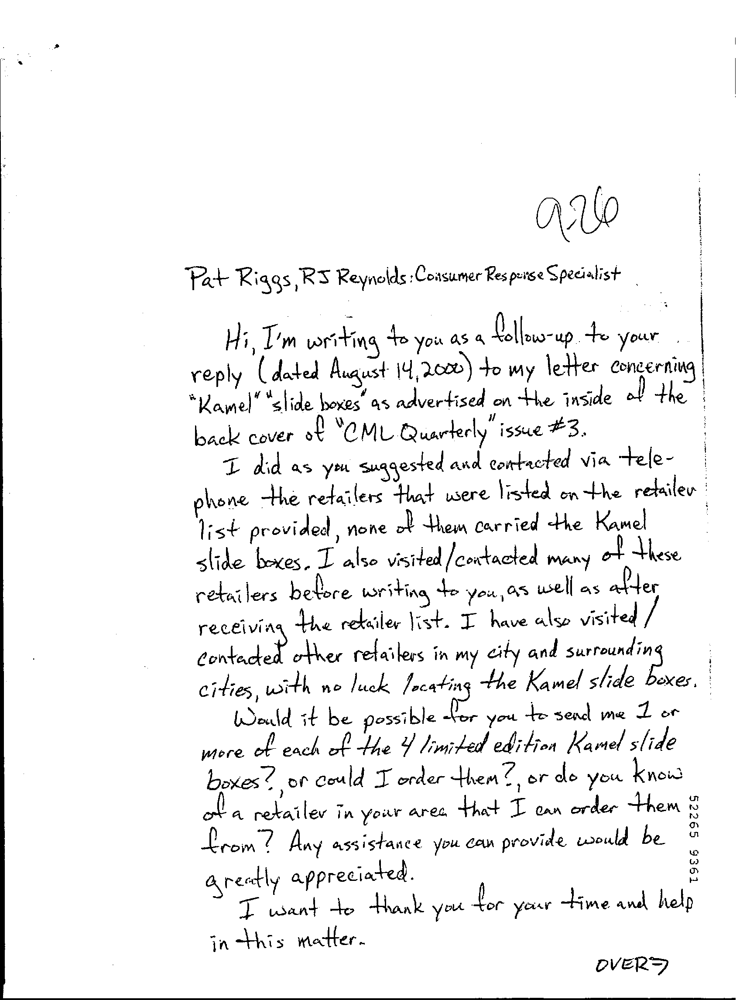 9-26
Pat Riggs, RJ Reynolds: Consumer Response Specialist
Hi, I'm writing to you as a follow-up to your
reply (dated August 14, 2000) to my letter concerning
"Kamel" "slide boxes" as advertised on the inside of the
back cover of "CML Quarterly" issue #3.
I did as you suggested and contacted via tele-
phone the retailers that were listed on the retailer
list provided, none of them carried the Kamel
slide boxes. I also visited/contacted many of these
retailers before writing to you, as well as after
receiving the retailer list. I have also visited/
contacted other retailers in my city and surrounding
cities, with no luck locating the Kamel slide boxes.
Would it be possible for you to send me 1 or
more of each of the 4 limited edition Kamel slide
boxes?, or could I order them?, or do you know
of a retailer in your area that I can order them
from? Any assistance you can provide would be
greatly appreciated.
I want to thank you for your time and help
in this matter.
OVER⇒
52265 9361